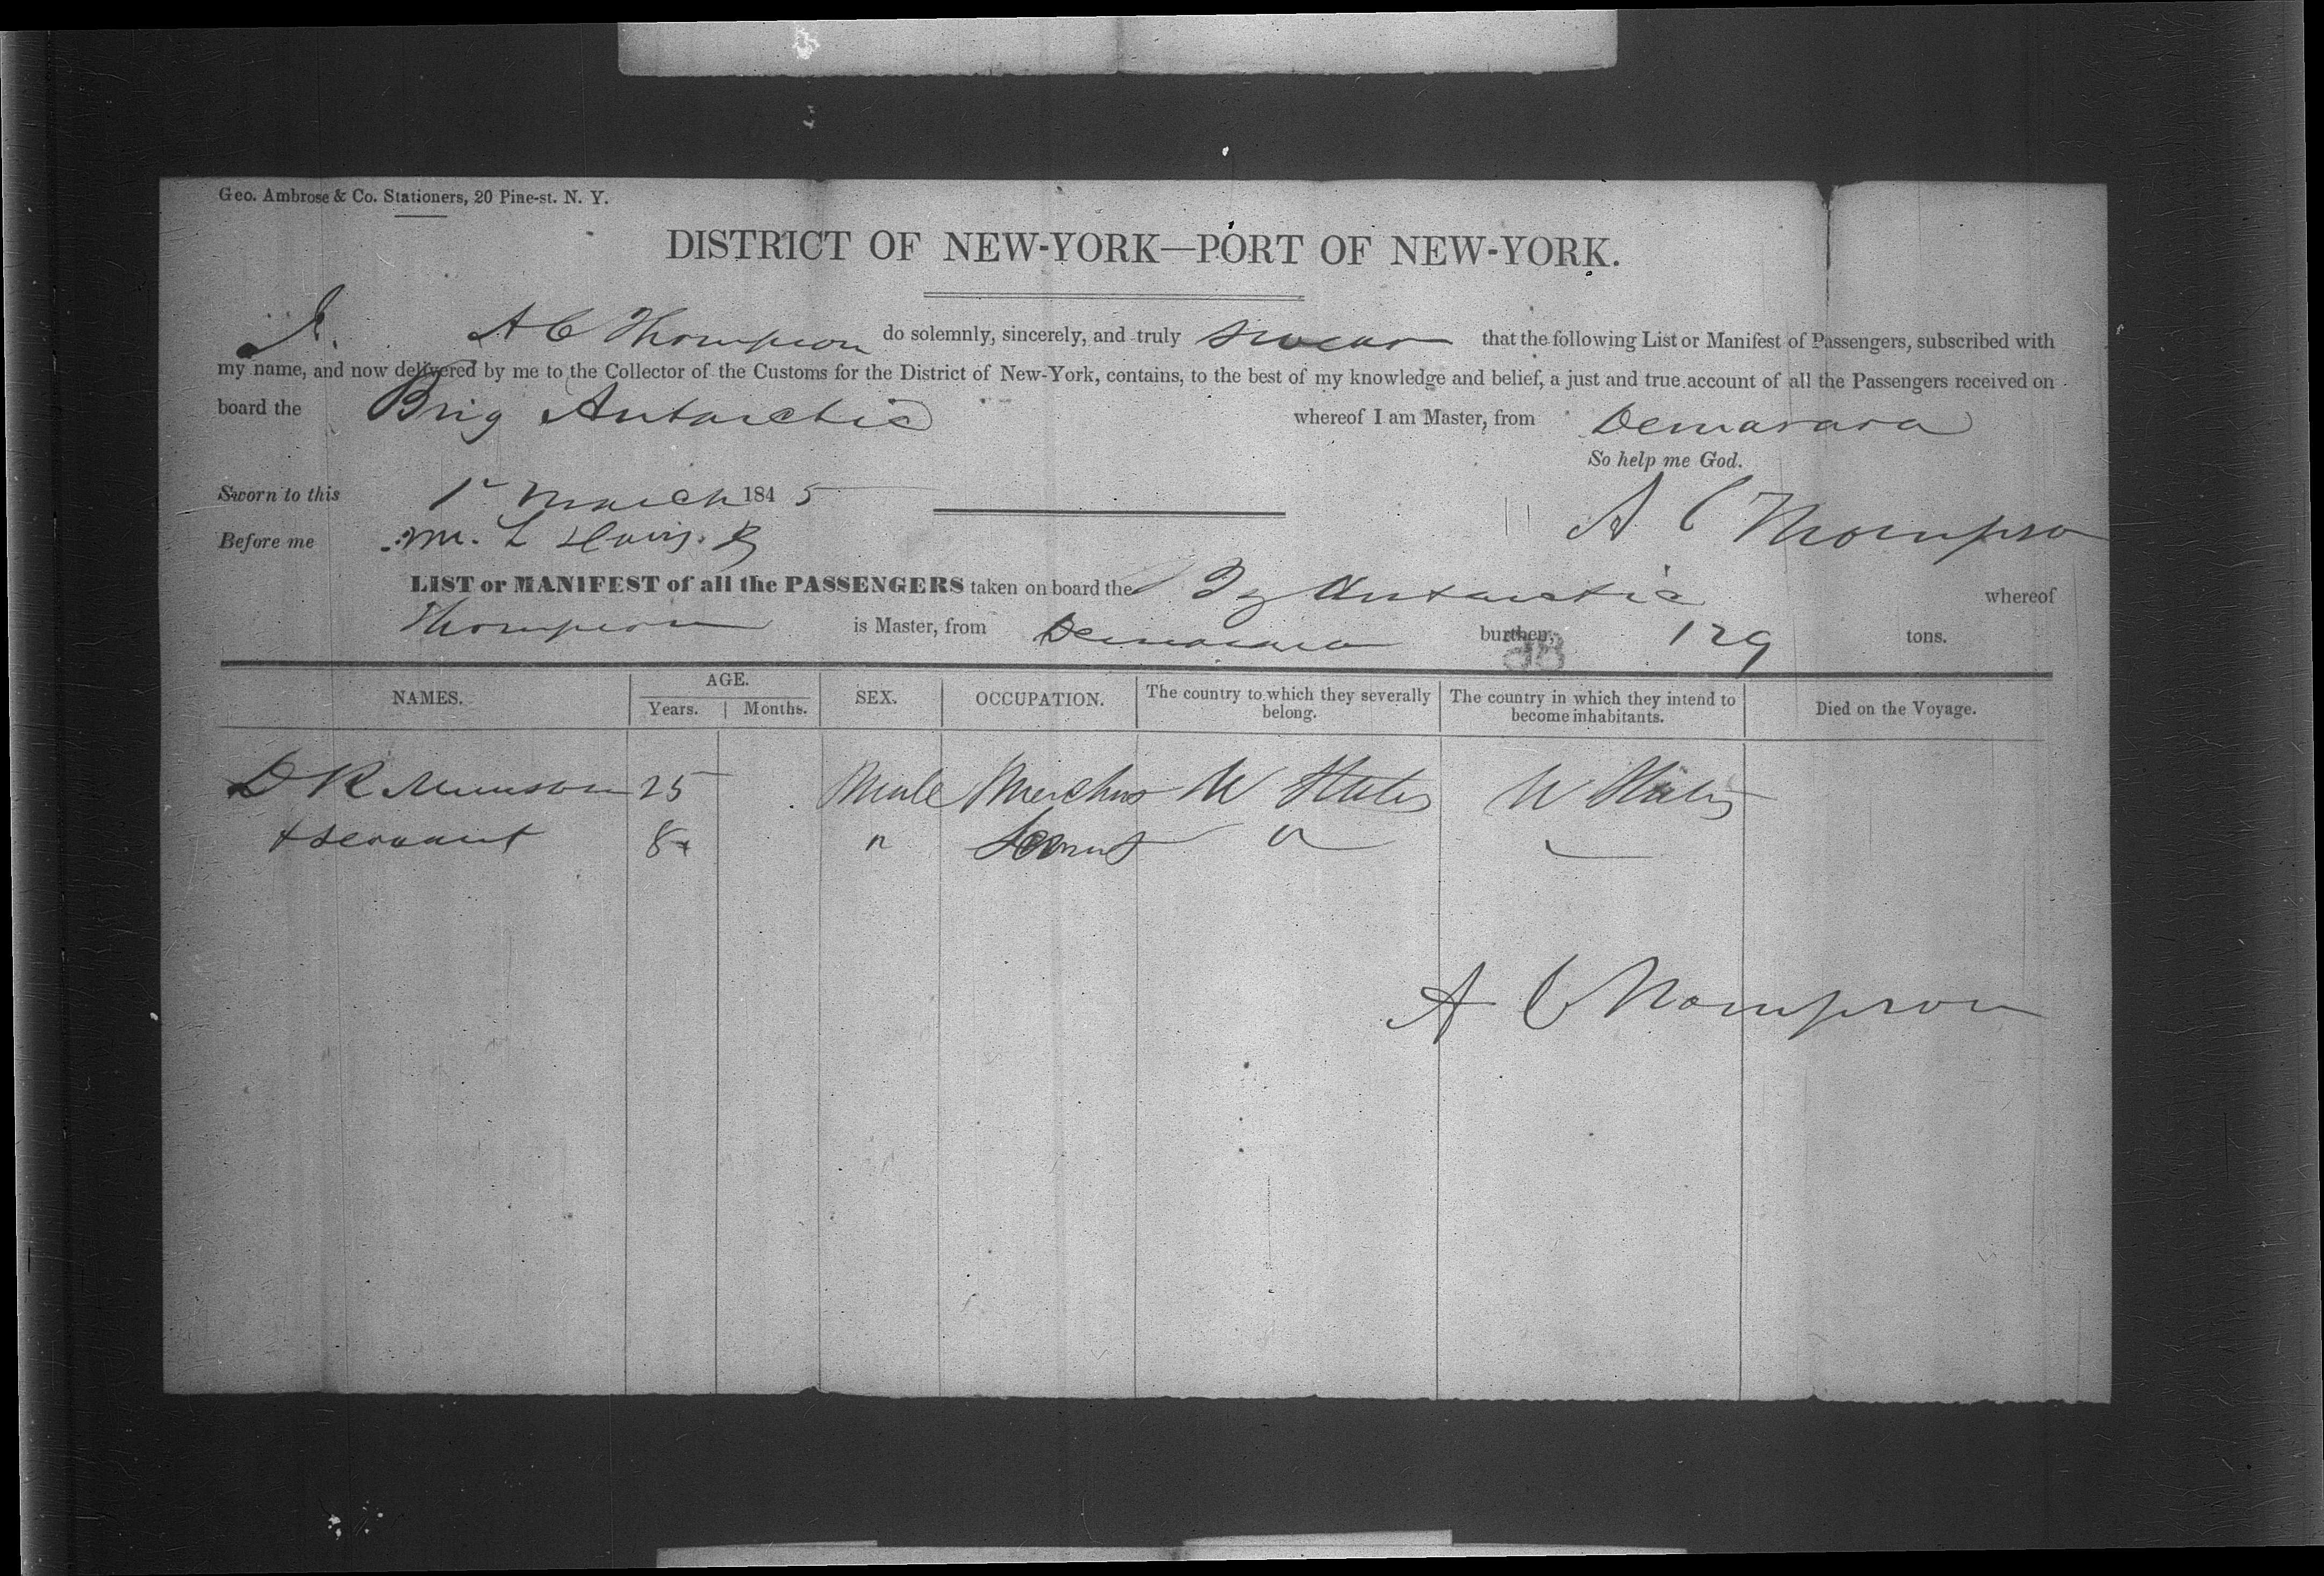 Geo. Ambrose & Co. Stationers, 20 Pine-st. N. Y.
DISTRICT OF NEW-YORK—PORT OF NEW-YORK.
I, A C Thompson do solemnly, sincerely, and truly swear that the following List or Manifest of Passengers, subscribed with
my name, and now delivered by me to the Collector of the Customs for the District of New-York, contains, to the best of my knowledge and belief, a just and true account of all the Passengers received on
board the Brig Antarctic whereof I am Master, from Demarara
So help me God.
Sworn to this 1st March 1845
A C Thompson
Before me M. L Davis.
LIST or MANIFEST of all the PASSENGERS taken on board the Antarctic whereof
Thompson is Master, from Demarara burthen, 129 tons.
98
NAMES. AGE. Years. Months. SEX. OCCUPATION. The country to which they severally belong. The country in which they intend to become inhabitants. Died on the Voyage.
D R Munson 25 Male Merchant U States U States
+ servant 8 " Servant "
A C Thompson